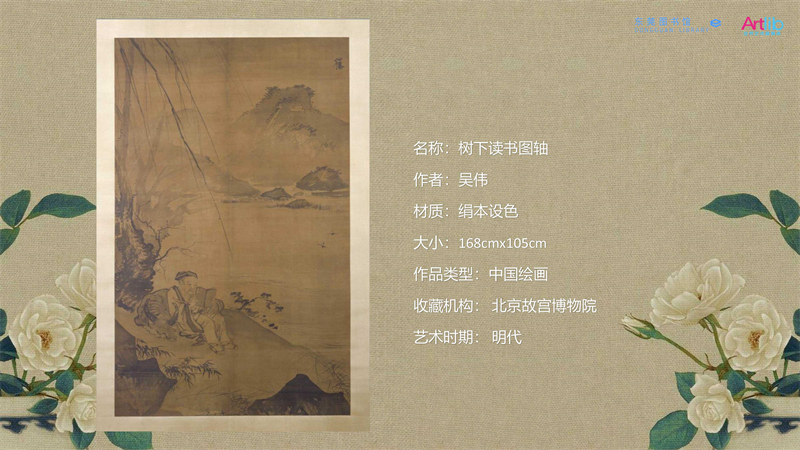 Artlib
名称：树下读书图轴
作者：吴伟
材质：绢本设色
大小：168cmx105cm
作品类型：中国绘画
收藏机构： 北京故宫博物院
艺术时期： 明代